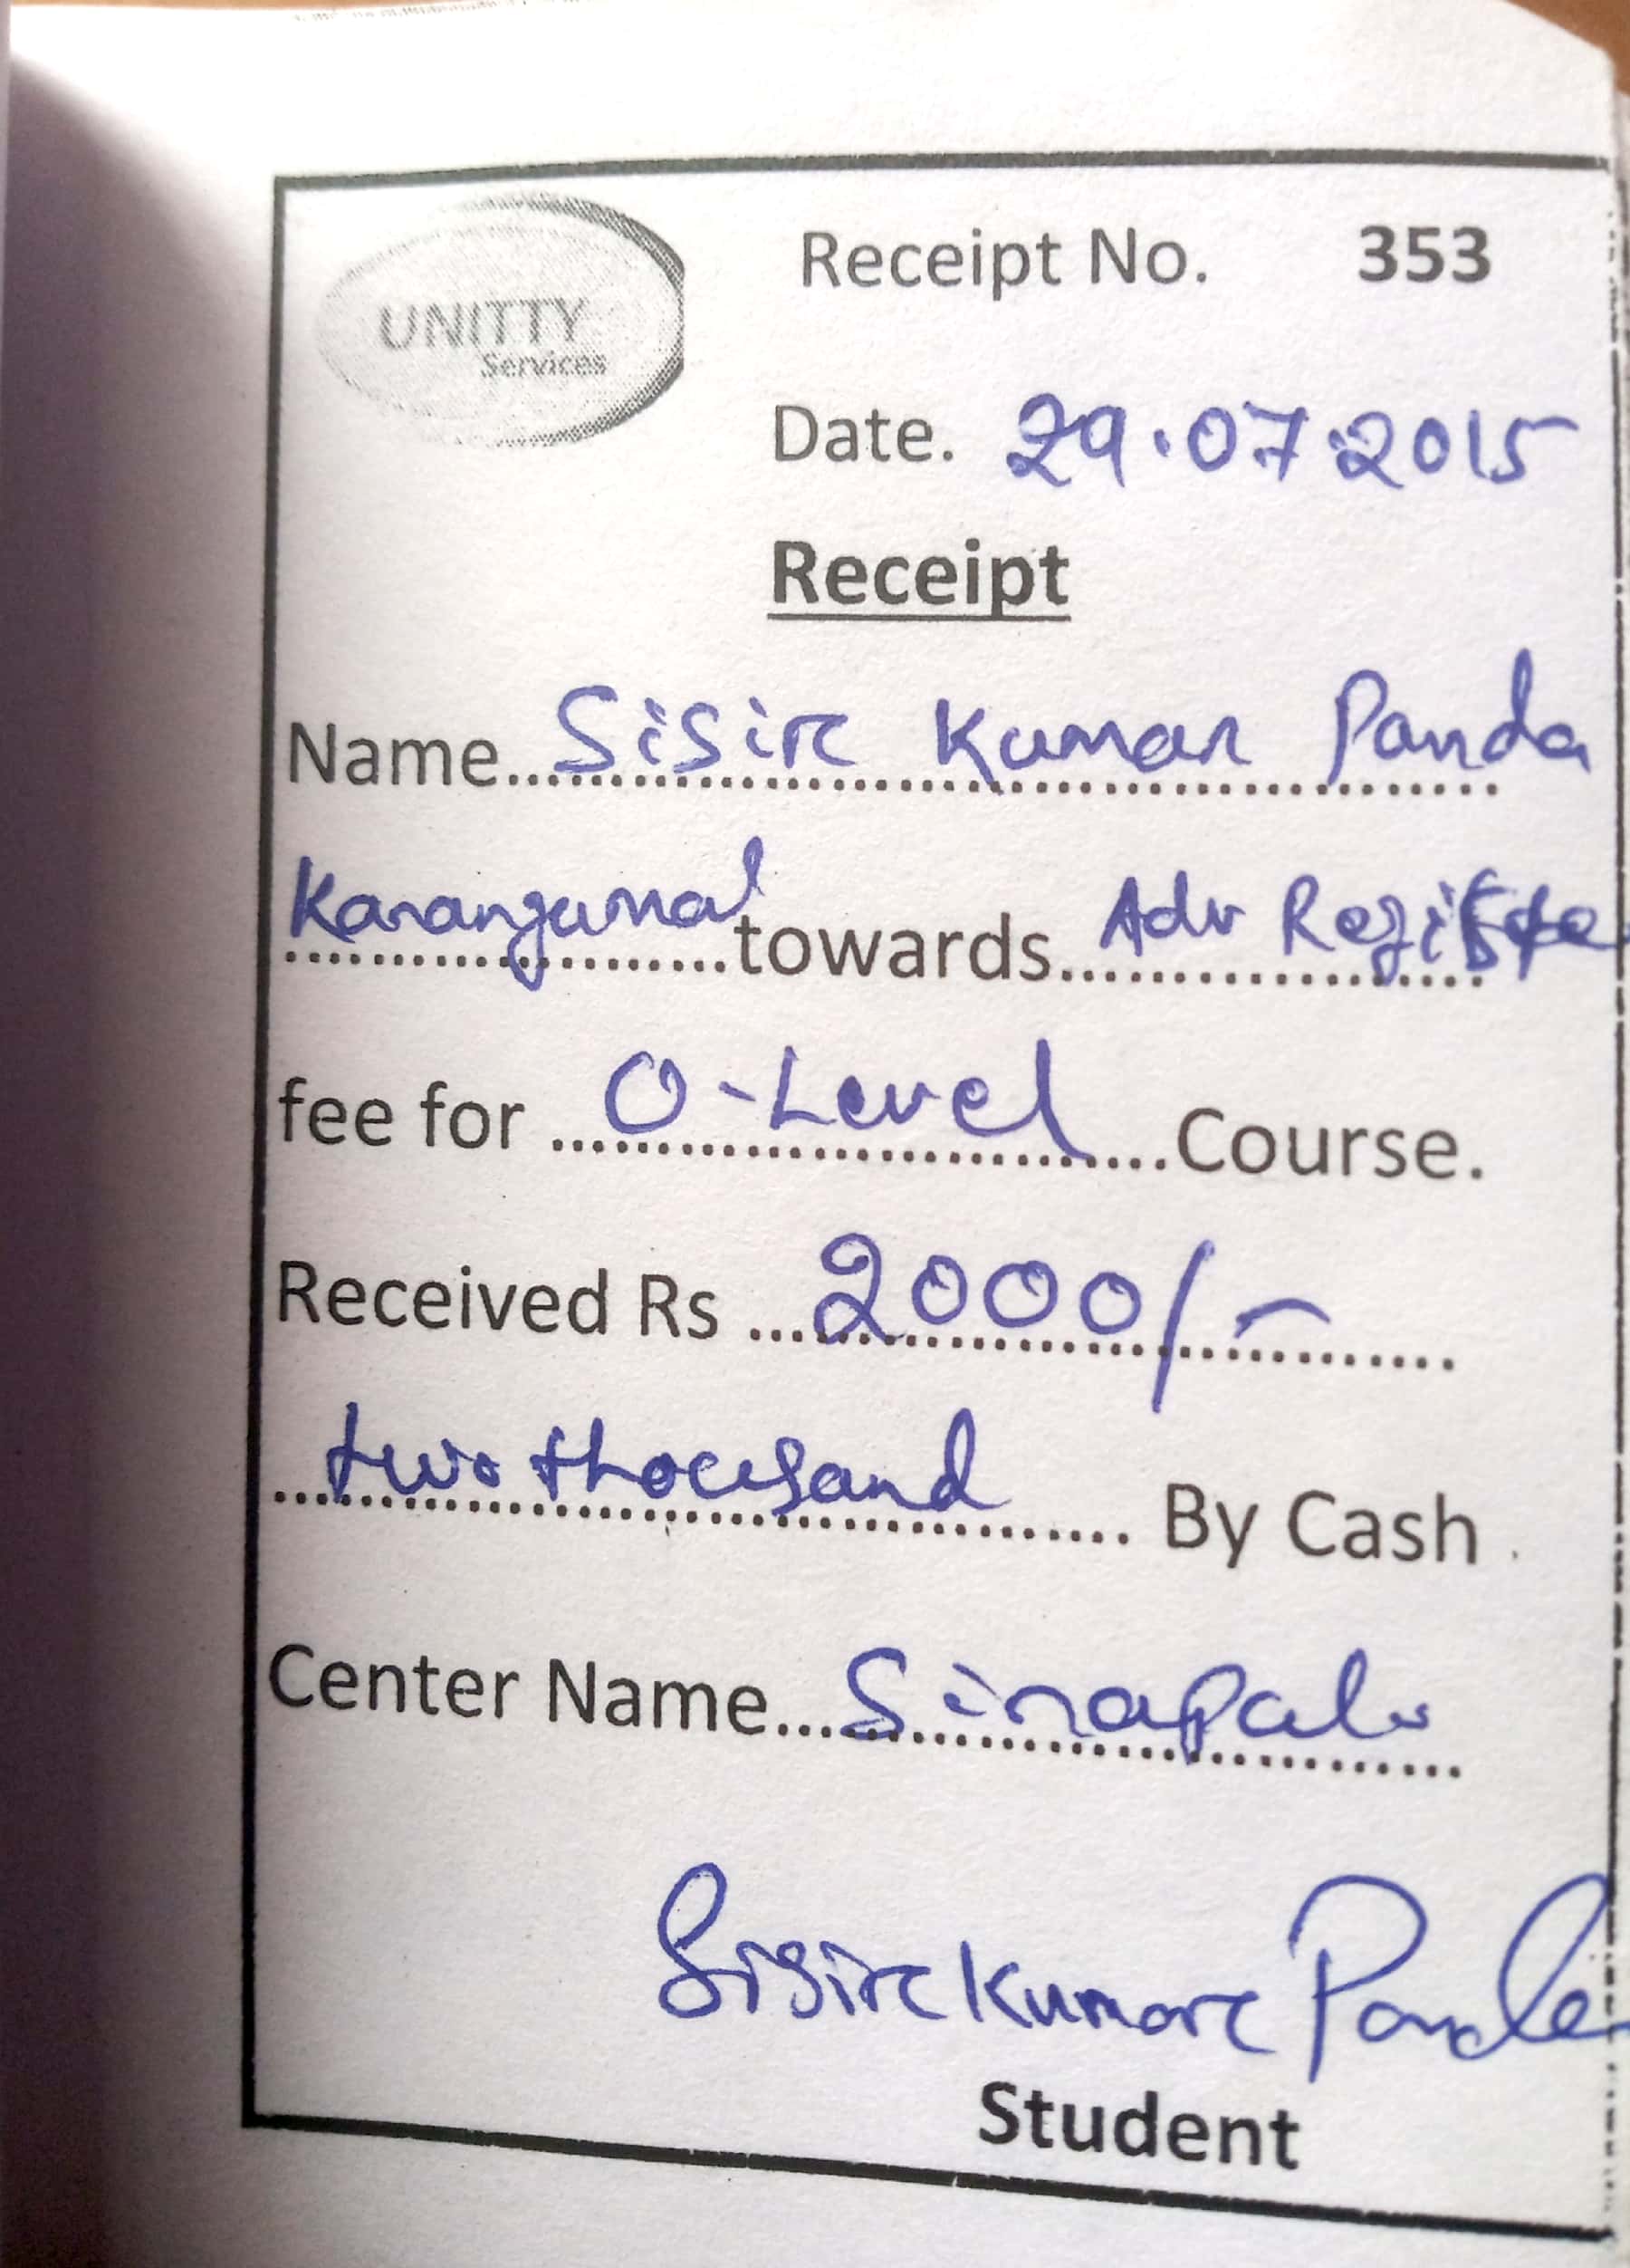 UNITTY
Services
Receipt No. 353
Date. 29.07.2015
Receipt
Name Sisir Kumar Panda
Karangamal towards Adv
fee for O-Level Course.
Received Rs 2000/-
two thousand By Cash
Center Name Sinapali
Sisir Kumar Panda
Student